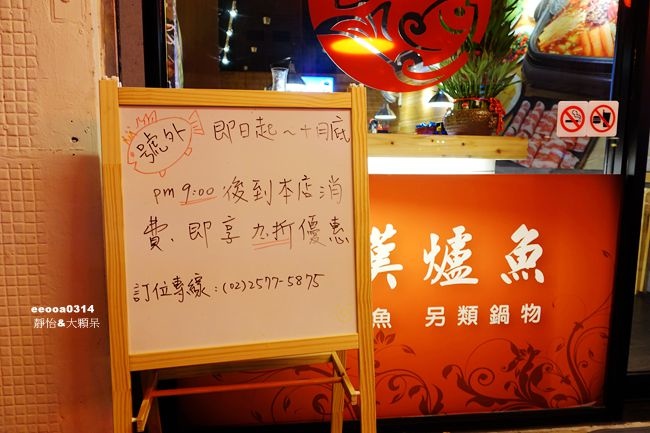 號外
即日起～十月底
pm 9:00 後到本店消
費、即享 九折優惠
訂位專線：(02)2577-5875
漢爐魚
魚 另類鍋物
eeooa0314
靜怡&大顆呆